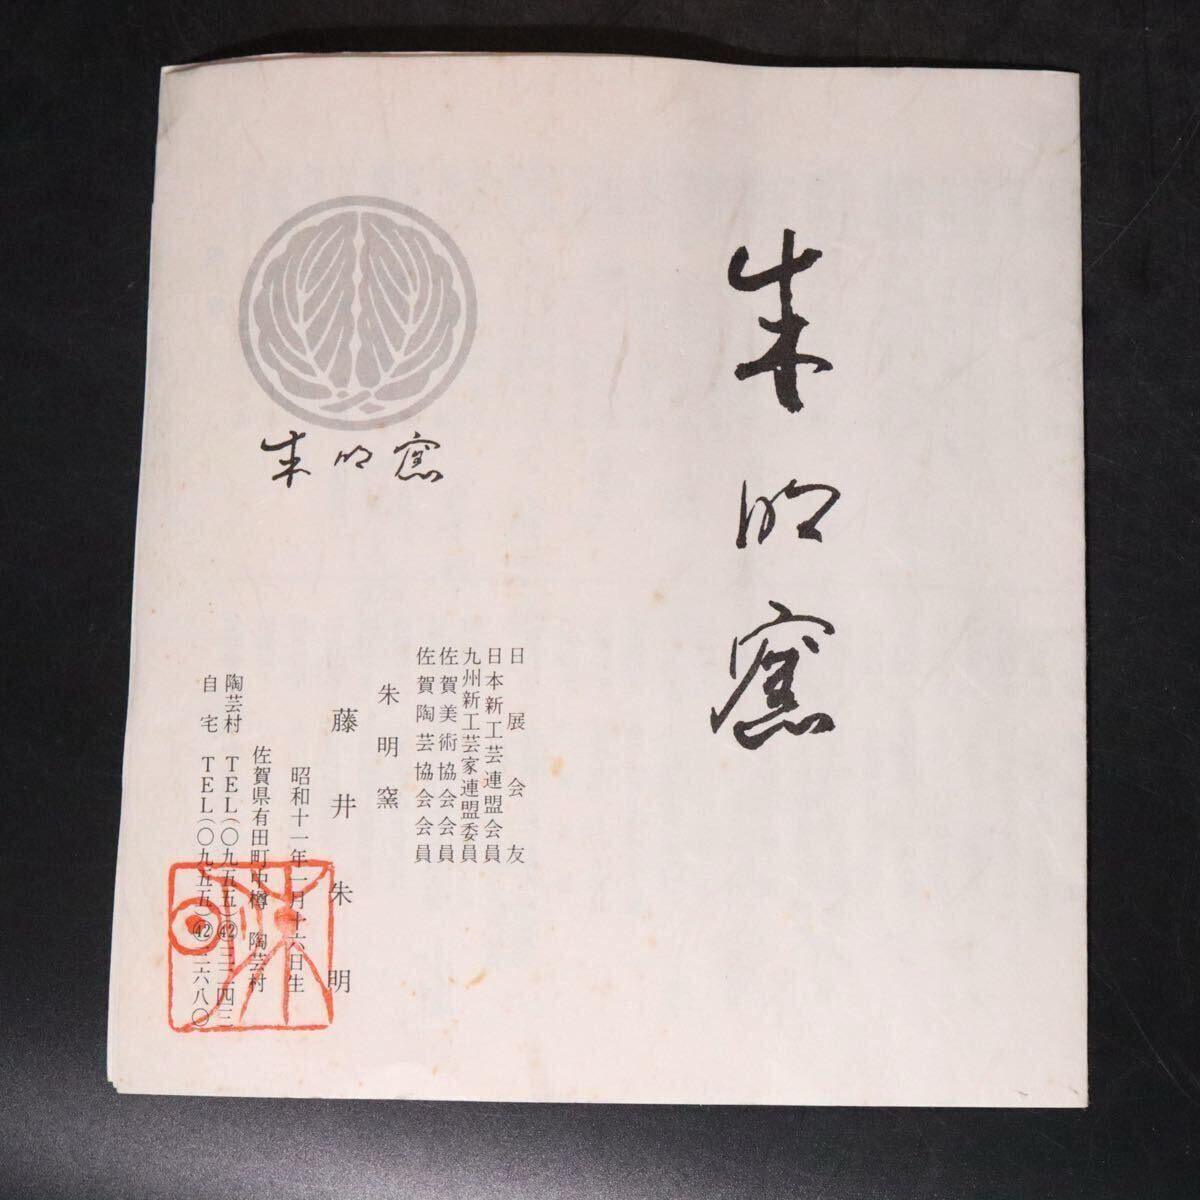 朱明窯
朱明窯
日展会友
日本新工芸連盟会員
九州新工芸家連盟委員
佐賀美術協会会員
佐賀陶芸協会会員
朱明窯
藤井朱明
昭和十一年一月十六日生
佐賀県有田町中樽 陶芸村
陶芸村 TEL(〇九五五)㊷三二四三
自宅 TEL(〇九五五)㊷二六八〇